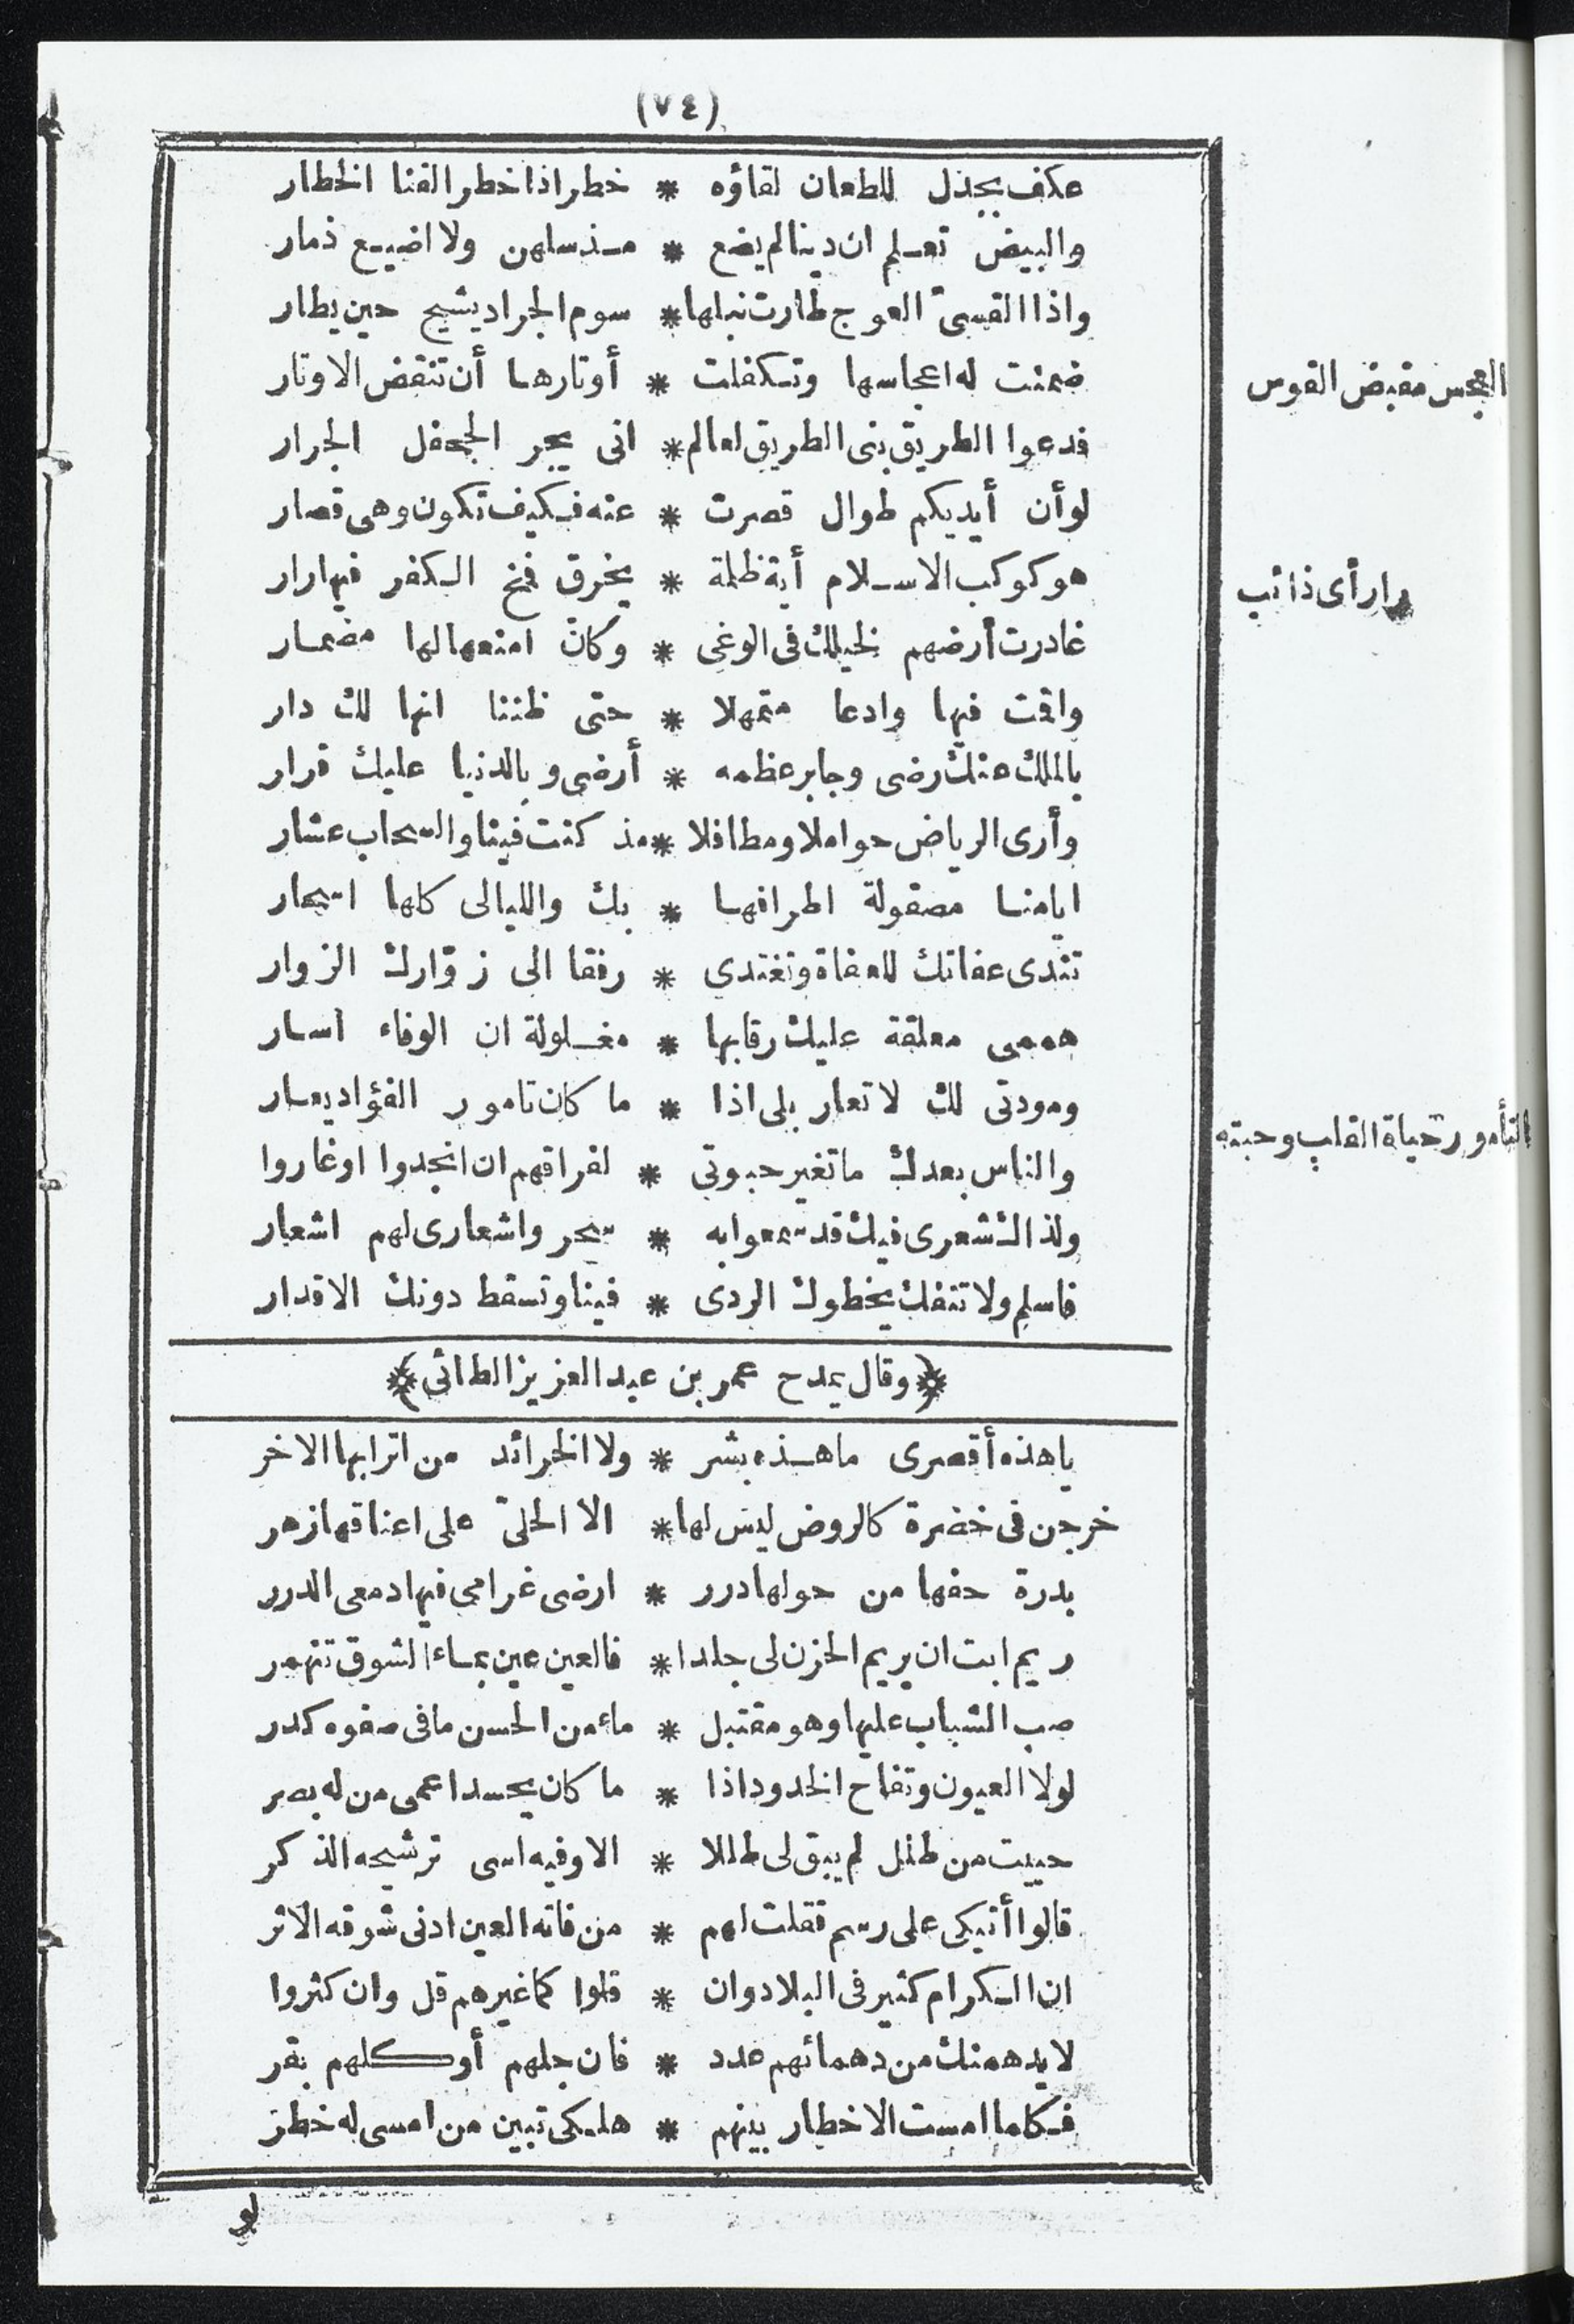 (٧٤)
عكف بجذل للطعان لقاؤه * خطر اذا خطر القنا الخطار
والبيض تعلم ان دينا لم يضع * مذ سلهن ولا اضيع ذمار
واذا القسىّ العوج طارت نبلها * سوم الجراد يشيح حين يطار
ضمنت له اعجاسها وتكفلت * أوتارها أن تنقض الاوتار
العجس مقبض القوس
فدعوا الطريق بنى الطريق لعالم * انى يجر الجحفل الجرار
لو أن أيديكم طوال قصرت * عنه فكيف تكون وهى قصار
هو كوكب الاسلام أية ظلمة * يخرق فمخ الكفر فيها رار
رار أى ذائب
غادرت أرضهم لخيلك فى الوغى * وكان امنعها لها مضمار
واقمت فيها وادعا متمهلا * حتى ظننا انها لك دار
بالملك عنك رضى وجابر عظمه * أرضى وبالدنيا عليك قرار
وأرى الرياض حواملا ومطافلا * مذ كنت فينا والسحاب عشار
ايامنا مصقولة اطرافها * بك والليالى كلها اسحار
تندى عفاتك للعفاة وتغتدى * رفقا الى زوّارك الزوار
هممى معلقة عليك رقابها * مغلولة ان الوفاء اسار
ومودتى لك لا تعار بلى اذا * ما كان تامور الفؤاد يعار
التأمور حياة القلب وحبته
والناس بعدك ما تغير حبوتى * لفراقهم ان انجدوا اوغاروا
ولذاك شعرى فيك قد سمعوا به * سحر واشعارى لهم اشعار
فاسلم ولا تنفك يخطوك الردى * فينا وتسقط دونك الاقدار
﴿وقال يمدح عمر بن عبد العزيز الطائى﴾
يا هذه أقصرى ما هذه بشر * ولا الخرائد من اترابها الاخر
خرجن فى خضرة كالروض ليس لها * الا الحلىّ على اعناقها زهر
بدرة حفها من حولها درر * ارضى غرامى فيها دمعى الدرر
ريم ابت ان يريم الحزن لى جلدا * فالعين عين بماء الشوق تنهمر
صب الشباب عليها وهو مقتبل * ماء من الحسن ما فى صفوه كدر
لولا العيون وتفاح الخدود اذا * ما كان يحسد اعمى من له بصر
حييت من طلل لم يبق لى طللا * الا وفيه اسى ترشيحه الذكر
قالوا أتبكى على رسم فقلت لهم * من فاته العين ادنى شوقه الاثر
ان الكرام كثير فى البلاد وان * قلوا كما غيرهم قل وان كثروا
لا يدهمنك من دهمائهم عدد * فان جلهم أو كلهم بقر
فكلما امست الاخطار بينهم * هلكى تبين من امسى له خطر
لو